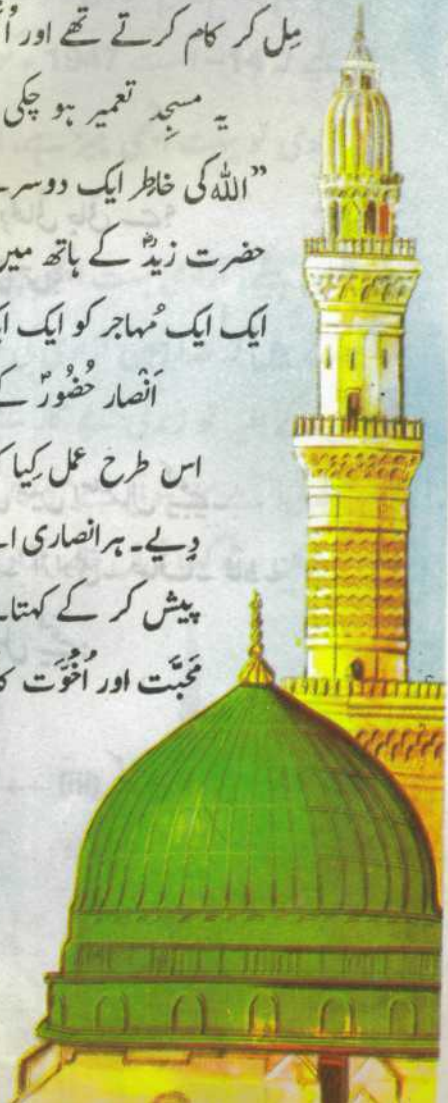 مِل کر کام کرتے تھے اور
یہ مسجِد تعمیر ہو چکی
”اللہ کی خاطِر ایک دوسرے
حضرت زیدؓ کے ہاتھ میں
ایک ایک مُہاجر کو ایک
اَنْصار حُضُورؐ کے
اس طرح عمل کِیا
دِیے۔ ہر انصاری
پیش کر کے کہتا۔
مَحبَّت اور اُخُوَّت